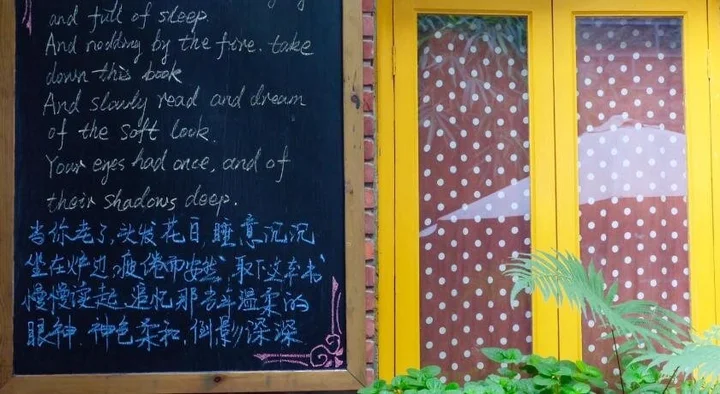 and full of sleep.
And nodding by the fire. take
down this book
And slowly read and dream
of the soft look.
Your eyes had once, and of
their shadows deep.
当你老了,头发花白,睡意沉沉
坐在炉边,疲倦而安然,取下这本书
慢慢读起、追忆那当年温柔的
眼神.神色柔和,倒影深深